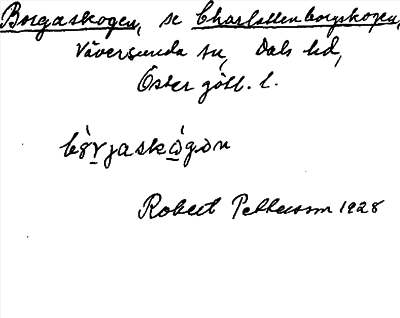 Borgaskogen, se Charlottenborgskogen,
Väversunda sn, Dals hd,
Östergötl. l.
bǫ̀rjaskǫ́gən
Robert Pettersson 1928